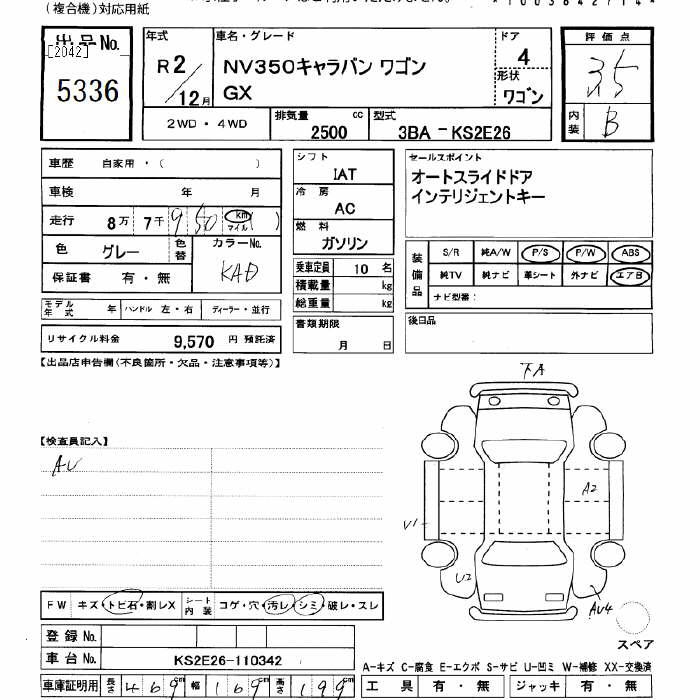 (複合機)対応用紙
出品No.
[2042]
5336
年式
R2/12月
車名・グレード
NV350キャラバン ワゴン
GX
ドア
4
形状
ワゴン
評価点
3.5
内装
B
2WD・4WD
排気量
2500 cc
型式
3BA-KS2E26
車歴 自家用・( )
車検 年 月
走行 8万 7千 950 km マイル ( )
色 グレー
色替
カラーNo.
KAD
保証書 有・無
モデル年式 年 ハンドル 左・右 ディーラー・並行
リサイクル料金 9,570 円 預託済
シフト
IAT
冷房
AC
燃料
ガソリン
乗車定員 10 名
積載量 kg
総重量 kg
書類期限
月 日
セールスポイント
オートスライドドア
インテリジェントキー
装備品
S/R 純A/W P/S P/W ABS
純TV 純ナビ 革シート 外ナビ エアB
ナビ型番:
後日品
【出品店申告欄(不良箇所・欠品・注意事項等)】
【検査員記入】
AU
下A
A2
V1
U2
AU4
スペア
FW キズ・トビ石・割レX
シート内装 コゲ・穴・汚レ・シミ・破レ・スレ
登録No.
車台No. KS2E26-110342
車庫証明用 長さ 469cm 幅 169cm 高さ 199cm
A-キズ C-腐食 E-エクボ S-サビ U-凹ミ W-補修 XX-交換済
工具 有・無 ジャッキ 有・無